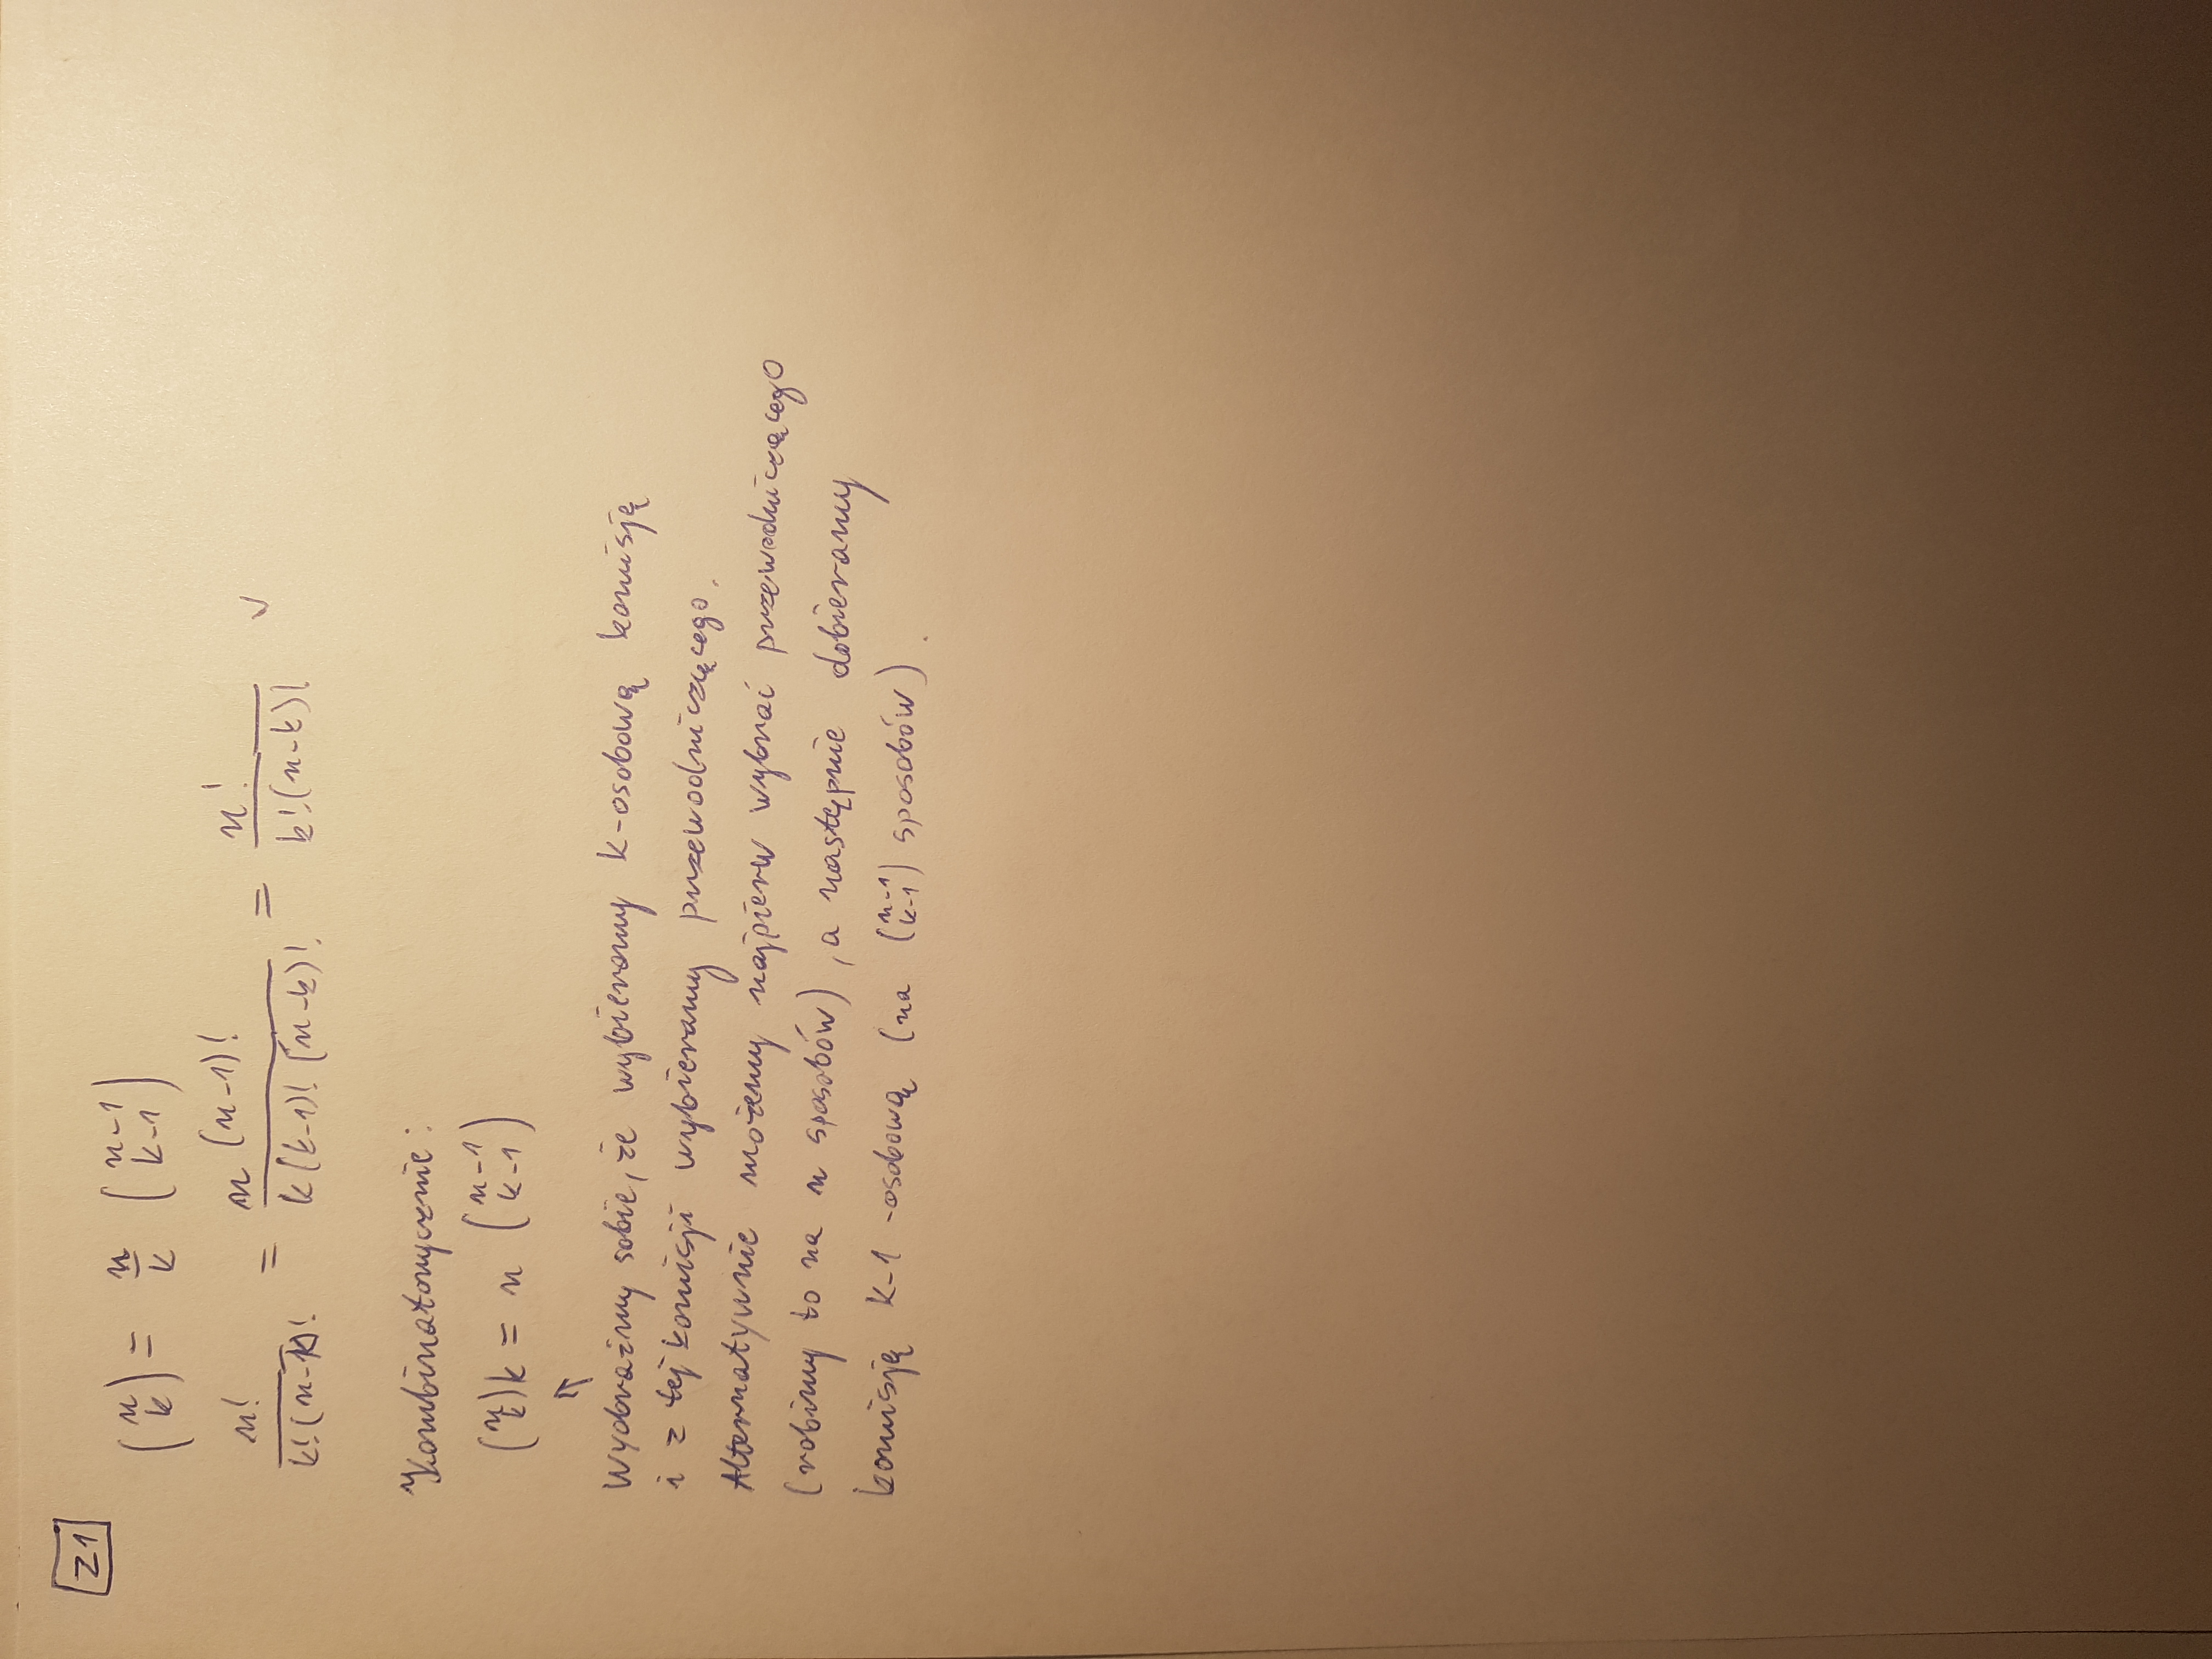 Z1
(n k) = n/k (n-1 k-1)
n!/k!(n-k)! = n(n-1)!/k(k-1)!(n-k)! = n!/k!(n-k)! ✓
Kombinatorycznie:
(n k)k = n (n-1 k-1)
↑
Wyobraźmy sobie, że wybieramy k-osobową komisję
i z tej komisji wybieramy przewodniczącego.
Alternatywnie możemy najpierw wybrać przewodniczącego
(robimy to na n sposobów), a następnie dobieramy
komisję k-1 -osobową (na (n-1 k-1) sposobów).